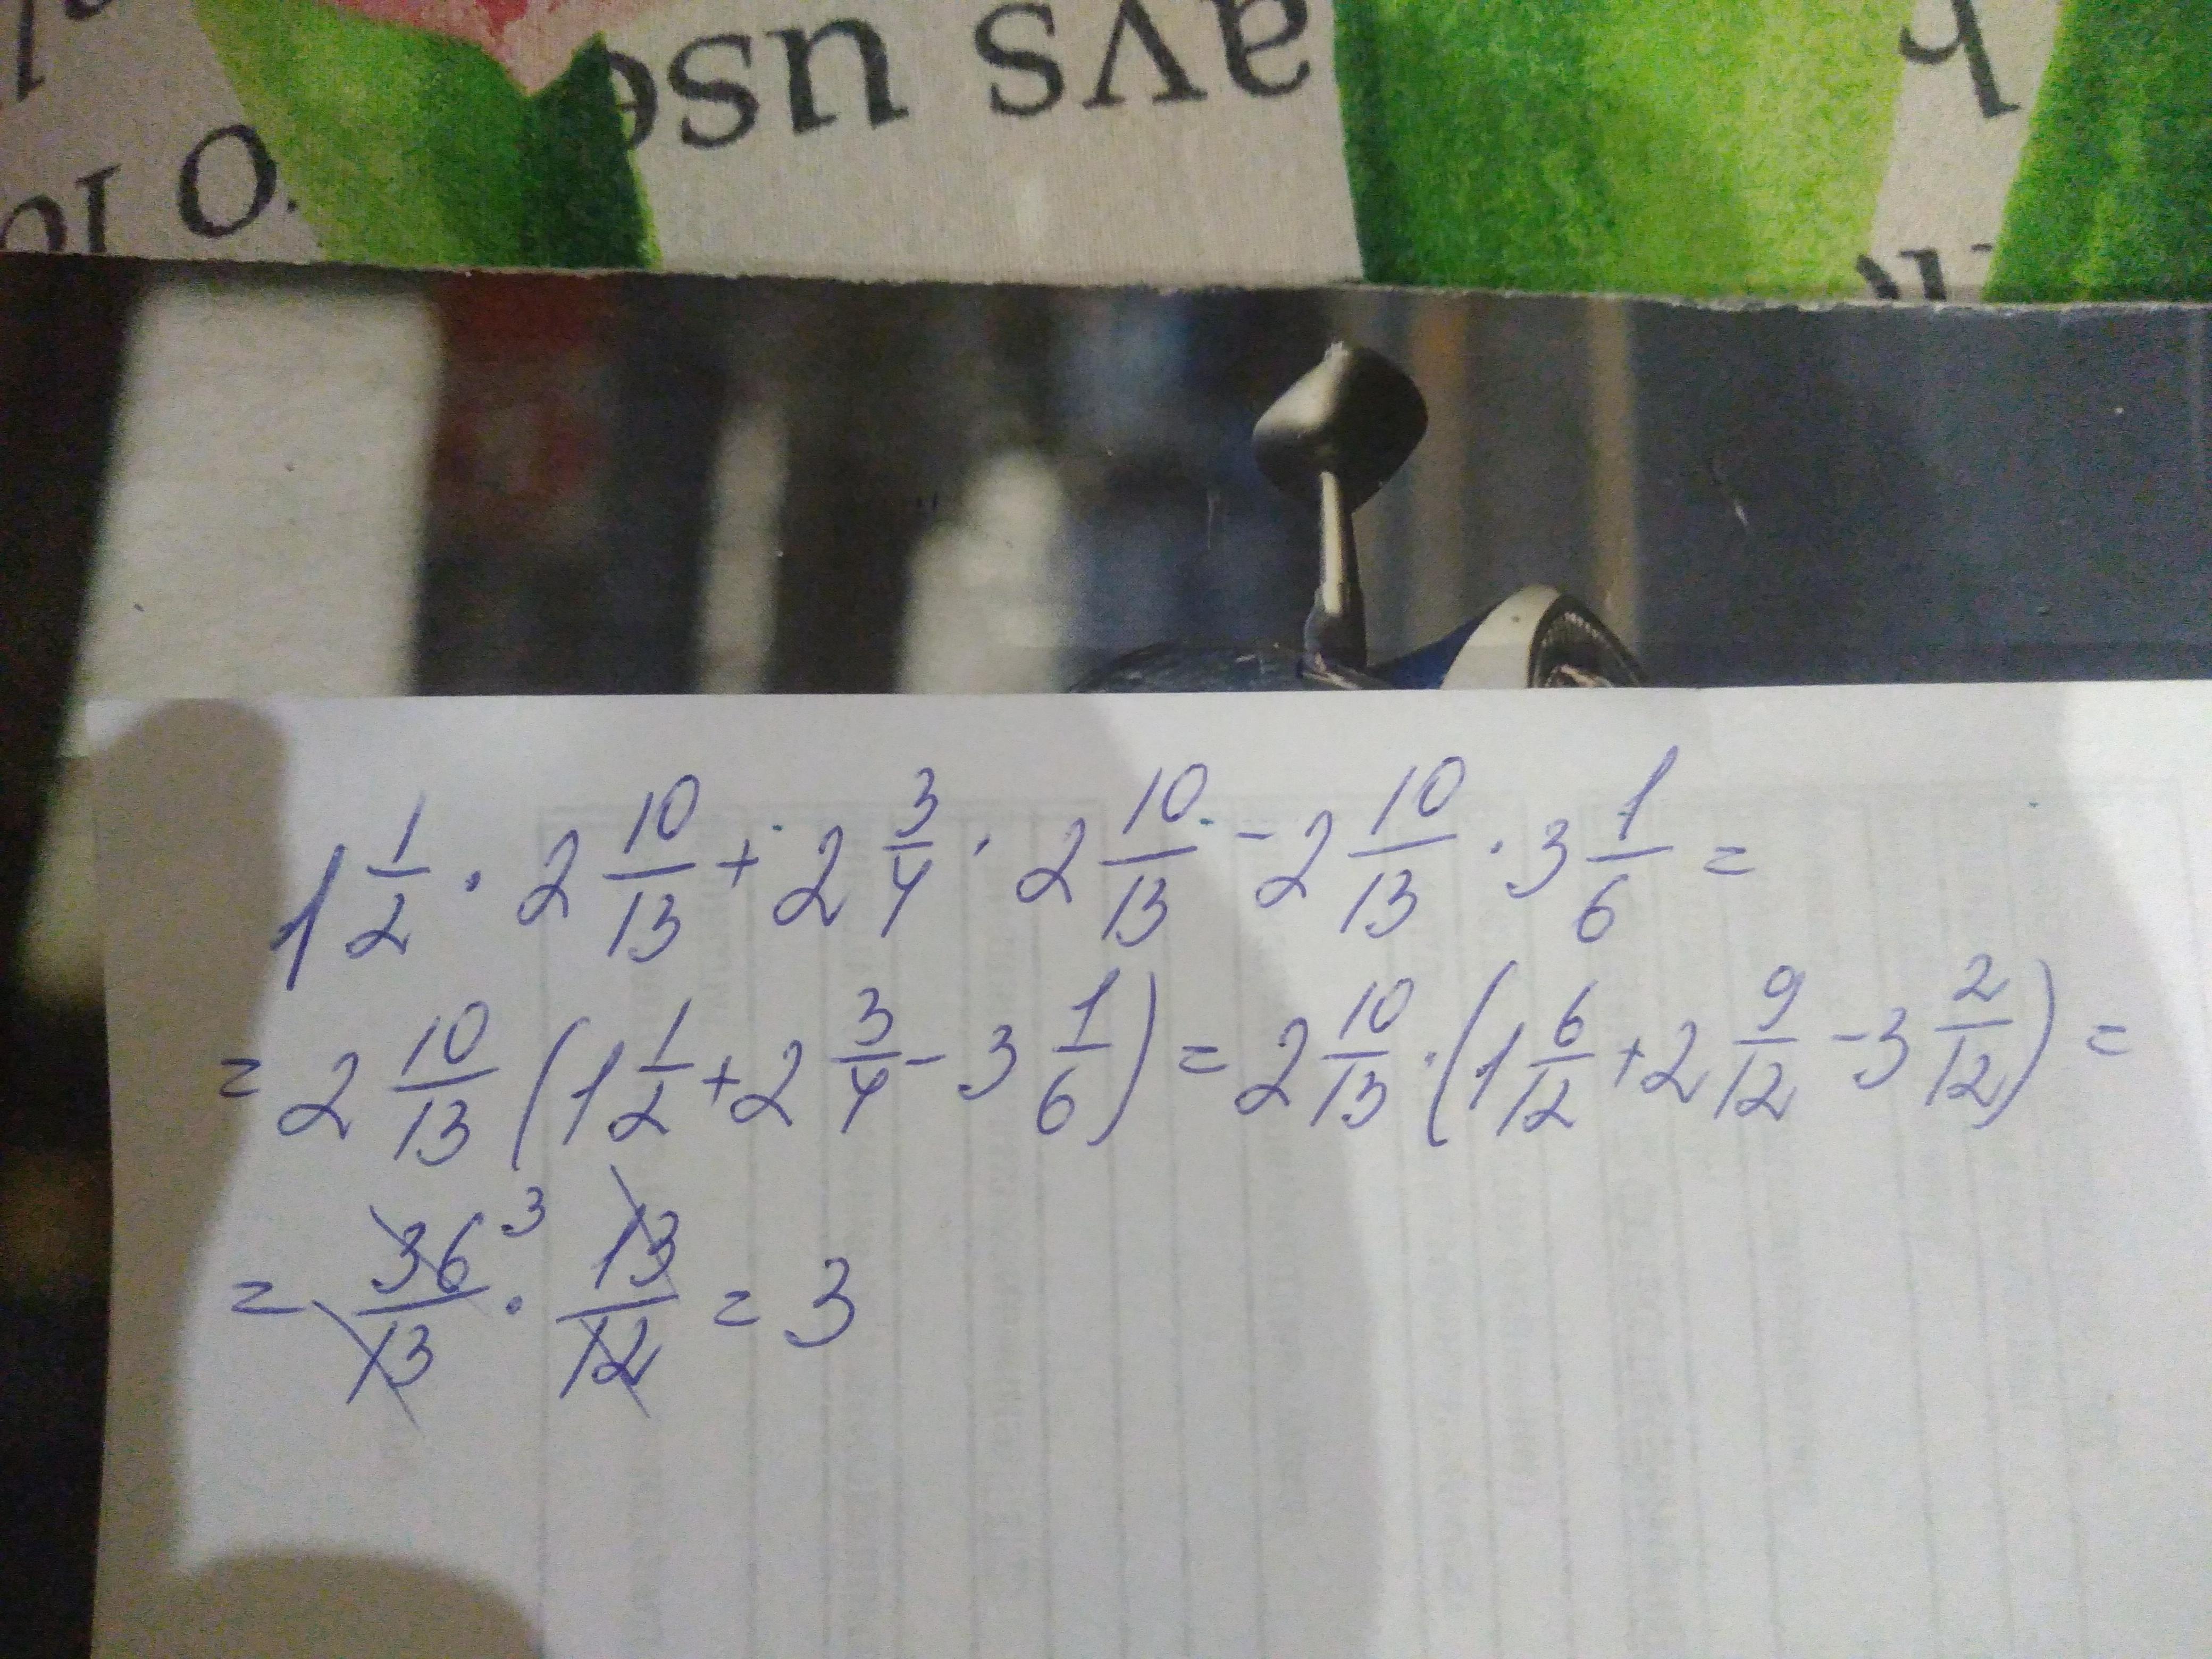 avs use
1 1/2 · 2 10/13 + 2 3/4 · 2 10/13 - 2 10/13 · 3 1/6 =
= 2 10/13 (1 1/2 + 2 3/4 - 3 1/6) = 2 10/13 · (1 6/12 + 2 9/12 - 3 2/12) =
= 36/13 ³ · 13/12 = 3